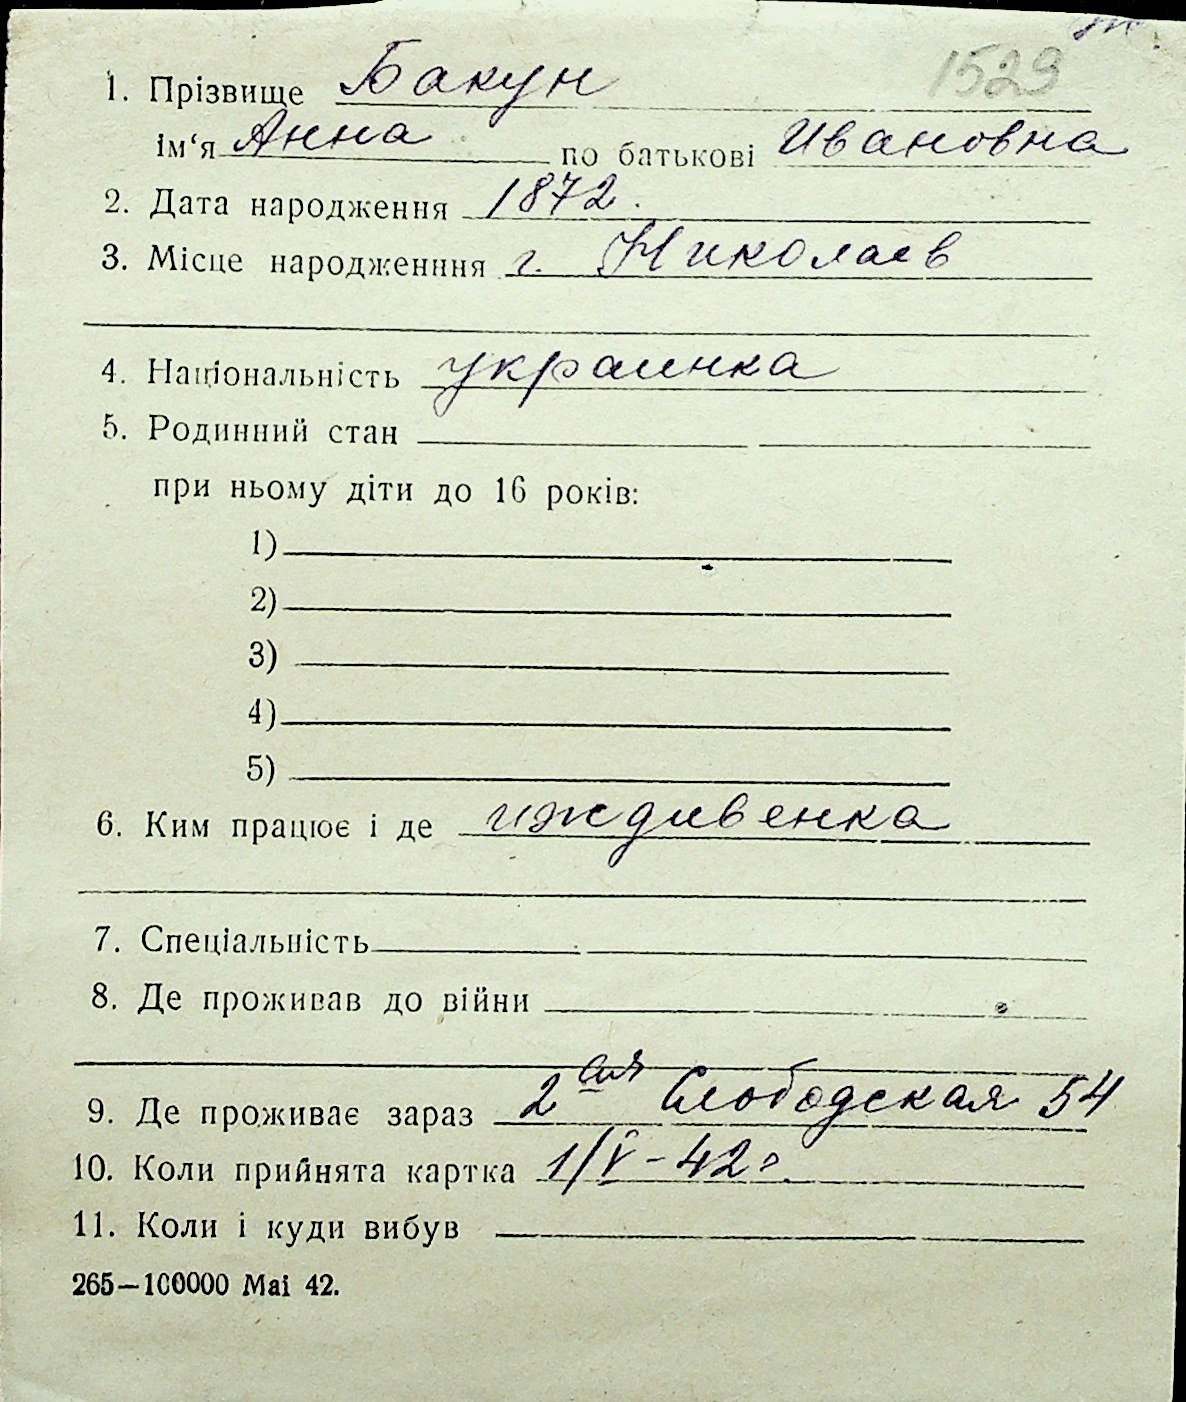 1529
1. Прізвище Бакун
ім‘я Анна по батькові Ивановна
2. Дата народження 1872.
3. Місце народженння г. Николаев
4. Національність украинка
5. Родинний стан
при ньому діти до 16 років:
1)
2)
3)
4)
5)
6. Ким працює і де иждивенка
7. Спеціальність
8. Де проживав до війни
9. Де проживає зараз 2 ая Слободская 54
10. Коли прийнята картка 1/V-42г.
11. Коли і куди вибув
265—100000 Mai 42.